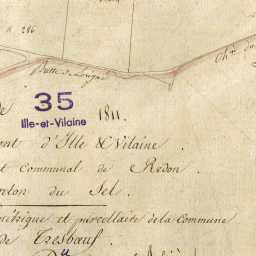 286
Butte de
Ch.in
de
35
1811.
Ille-et-Vilaine
ent d'Ille & Vilaine.
t Communal de Redon.
nton du Sel.
métrique et parcellaire de la Commune
de Tresbœuf
Du